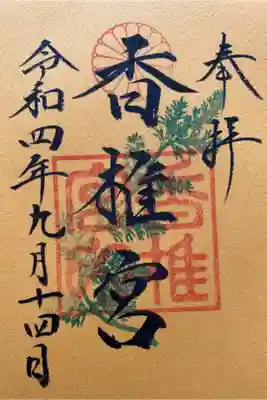 奉拝
香椎宮
令和四年九月十四日
香椎
宮印